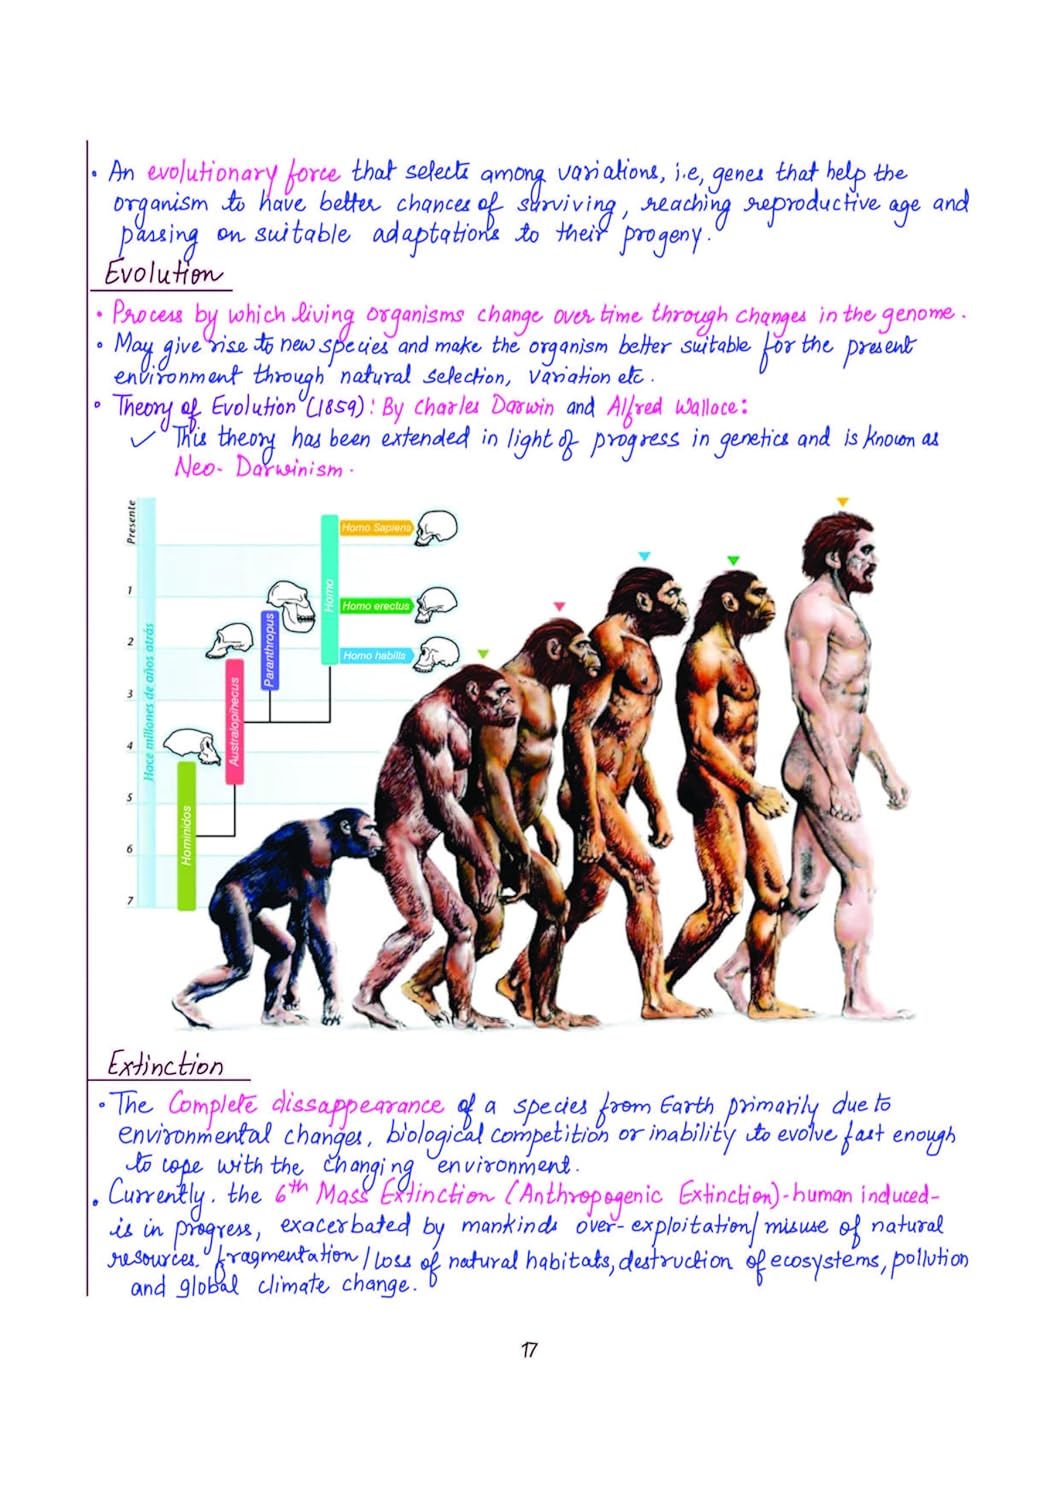 • An evolutionary force that selects among variations, i.e, genes that help the
organism to have better chances of surviving, reaching reproductive age and
passing on suitable adaptations to their progeny.
Evolution
• Process by which living organisms change over time through changes in the genome.
• May give rise to new species and make the organism better suitable for the present
environment through natural selection, variation etc.
• Theory of Evolution (1859): By Charles Darwin and Alfred Wallace:
✓ This theory has been extended in light of progress in genetics and is known as
Neo-Darwinism.
Presente
1
2
3
4
5
6
7
Hace millones de años atrás
Hominidos
Australopihecus
Paranthropus
Homo
Homo Sapiens
Homo erectus
Homo habilis
Extinction
• The Complete dissappearance of a species from Earth primarily due to
environmental changes, biological competition or inability to evolve fast enough
to cope with the changing environment.
• Currently. the 6th Mass Extinction (Anthropogenic Extinction)-human induced-
is in progress, exacerbated by mankinds over-exploitation/misuse of natural
resources. fragmentation/loss of natural habitats, destruction of ecosystems, pollution
and global climate change.
17